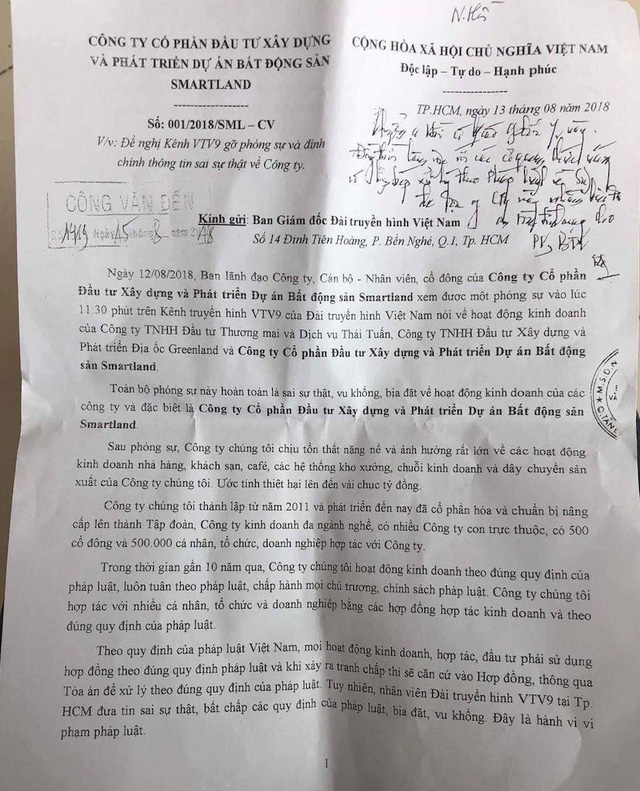 N.Hà
CÔNG TY CỔ PHẦN ĐẦU TƯ XÂY DỰNG
VÀ PHÁT TRIỂN DỰ ÁN BẤT ĐỘNG SẢN
SMARTLAND
CỘNG HÒA XÃ HỘI CHỦ NGHĨA VIỆT NAM
Độc lập – Tự do – Hạnh phúc
Số: 001/2018/SML – CV
V/v: Đề nghị Kênh VTV9 gỡ phóng sự và đính
chính thông tin sai sự thật về Công ty.
TP.HCM, ngày 13 tháng 08 năm 2018
CÔNG VĂN ĐẾN
Số 1419 Ngày 15 tháng 8 năm 2018
Kính gửi: Ban Giám đốc Đài truyền hình Việt Nam
Số 14 Đinh Tiên Hoàng, P. Bến Nghé, Q.1, Tp. HCM
Ngày 12/08/2018, Ban lãnh đạo Công ty, Cán bộ - Nhân viên, cổ đông của Công ty Cổ phần
Đầu tư Xây dựng và Phát triển Dự án Bất động sản Smartland xem được một phóng sự vào lúc
11:30 phút trên Kênh truyền hình VTV9 của Đài truyền hình Việt Nam nói về hoạt động kinh doanh
của Công ty TNHH Đầu tư Thương mai và Dịch vụ Thái Tuấn, Công ty TNHH Đầu tư Xây dựng và
Phát triển Địa ốc Greenland và Công ty Cổ phần Đầu tư Xây dựng và Phát triển Dự án Bất động
sản Smartland.
Toàn bộ phóng sự này hoàn toàn là sai sự thật, vu khống, bịa đặt về hoạt động kinh doanh của các
công ty và đặc biệt là Công ty Cổ phần Đầu tư Xây dựng và Phát triển Dự án Bất động sản
Smartland.
Sau phóng sự, Công ty chúng tôi chịu tổn thất nặng nề và ảnh hưởng rất lớn về các hoạt động
kinh doanh nhà hàng, khách sạn, café, các hệ thống kho xưởng, chuỗi kinh doanh và dây chuyền sản
xuất của Công ty chúng tôi. Ước tính thiệt hại lên đến vài chục tỷ đồng.
Công ty chúng tôi thành lập từ năm 2011 và phát triển đến nay đã cổ phần hóa và chuẩn bị nâng
cấp lên thành Tập đoàn, Công ty kinh doanh đa ngành nghề, có nhiều Công ty con trực thuộc, có 500
cổ đông và 500.000 cá nhân, tổ chức, doanh nghiệp hợp tác với Công ty.
Trong thời gian gần 10 năm qua, Công ty chúng tôi hoạt động kinh doanh theo đúng quy định của
pháp luật, luôn tuân theo pháp luật, chấp hành mọi chủ trương, chính sách pháp luật. Công ty chúng tôi
hợp tác với nhiều cá nhân, tổ chức và doanh nghiệp bằng các hợp đồng hợp tác kinh doanh và theo
đúng quy định của pháp luật.
Theo quy định của pháp luật Việt Nam, mọi hoạt động kinh doanh, hợp tác, đầu tư phải sử dụng
hợp đồng theo đúng quy định pháp luật và khi xảy ra tranh chấp thì sẽ căn cứ vào Hợp đồng, thông qua
Tòa án để xử lý theo đúng quy định của pháp luật. Tuy nhiên, nhân viên Đài truyền hình VTV9 tại Tp.
HCM đưa tin sai sự thật, bất chấp các quy định của pháp luật, bịa đặt, vu khống. Đây là hành vi vi
phạm pháp luật.
1